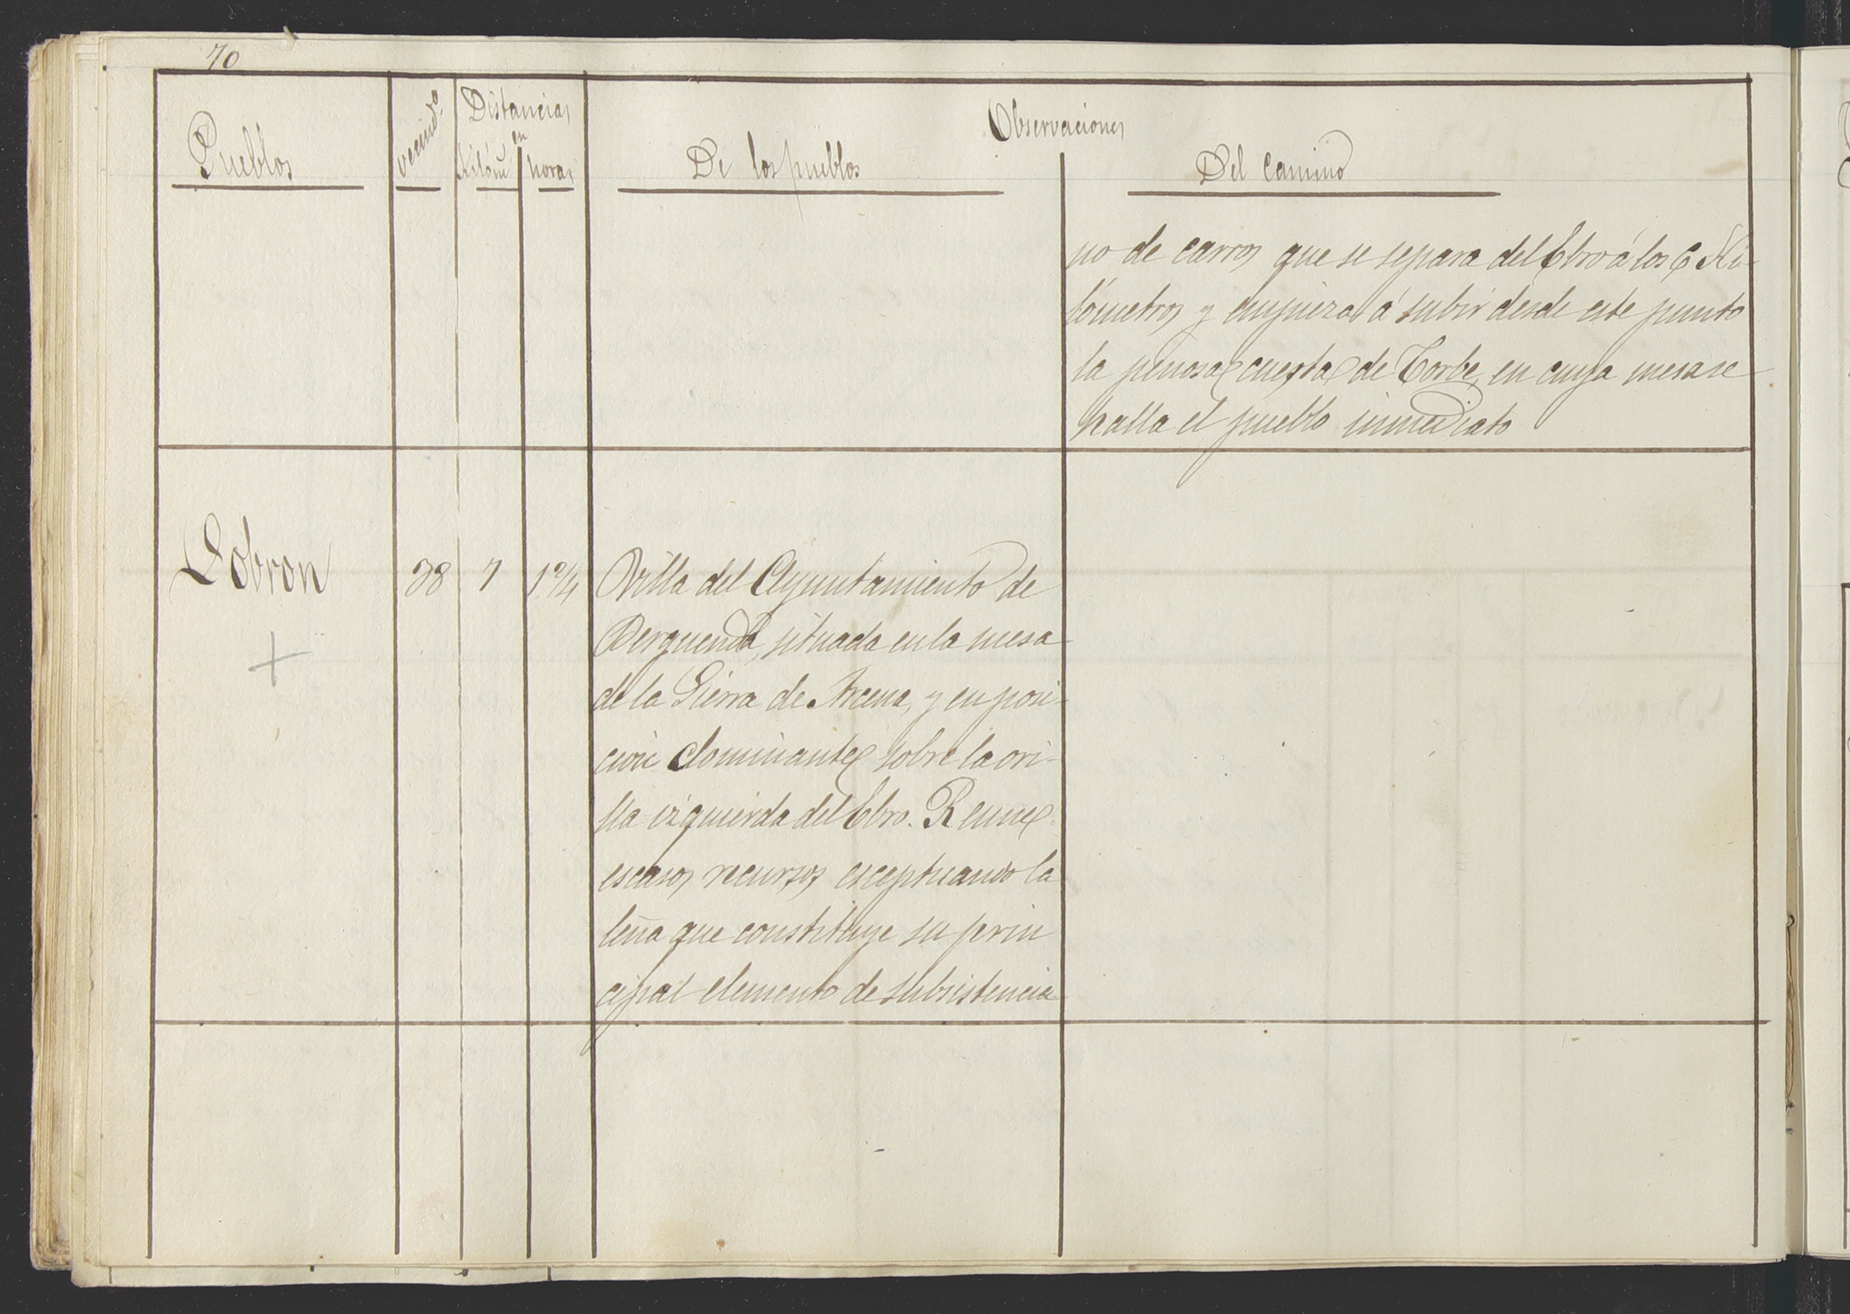 70
Pueblos
vecind.º
Distancias
en
Kilóm horas
Observaciones
De los pueblos
Del camino
no de carros que se separa del Ebro á los 6 Ki-
lómetros y empieza á subir desde este punto
la penosa cuesta de Torbe, en cuya mesa se
halla el pueblo inmediato
Sobron 38 7 1 2/4 Villa del Ayuntamiento de
Berguenda, situada en la mesa
de la Sierra de Arcena, y en posi-
cion dominante sobre la ori-
lla izquierda del Ebro. Reune
escasos recursos esceptuando la
leña que constituye su prin
cipal elemento de subsistencia